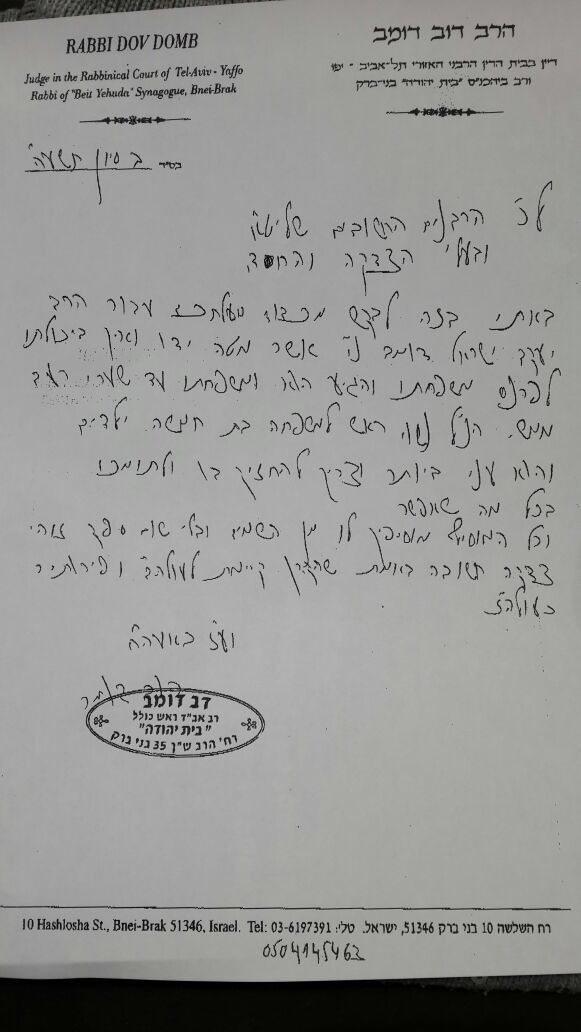 RABBI DOV DOMB
Judge in the Rabbinical Court of Tel-Aviv - Yaffo
Rabbi of "Beit Yehuda" Synagogue, Bnei-Brak
הרב דוב דומב
דיין בבית הדין הרבני האזורי תל-אביב - יפו
ורב ביהמנ"ס "בית יהודה" בני-ברק
בס"ד ב סיון תשע"ה
לכ' הרבנים החשובים שליט"א
ובעלי הצדקה והחסד
באתי בזה לבקש מכבוד מעלתכם עבור הרב
יעקב ישראל דומב נ"י אשר מטה ידו ואין ביכולתו
לפרנס משפחתו והגיע הוא ומשפחתו עד שערי רעב
ממש. הנ"ל נשוי ראש למשפחה בת חמשה ילדים
והוא עני ביותר וצריך להחזיק בו ולתומכו
בכל מה שאפשר
וכל המוסיף מוסיפין לו מן השמים ובלי שום ספק זוהי
צדקה חשובה באמת שהקרן קיימת לעולה"ב ופירותיה
בעולה"ז
וע"ז באעה"ח
דב דומב
דב דומב
רב אב"ד ראש כולל
"בית יהודה"
רח' הרב ש"ך 35 בני ברק
10 Hashlosha St., Bnei-Brak 51346, Israel. Tel: 03-6197391 :רח השלשה 10 בני ברק 51346, ישראל. טלי
0504145462